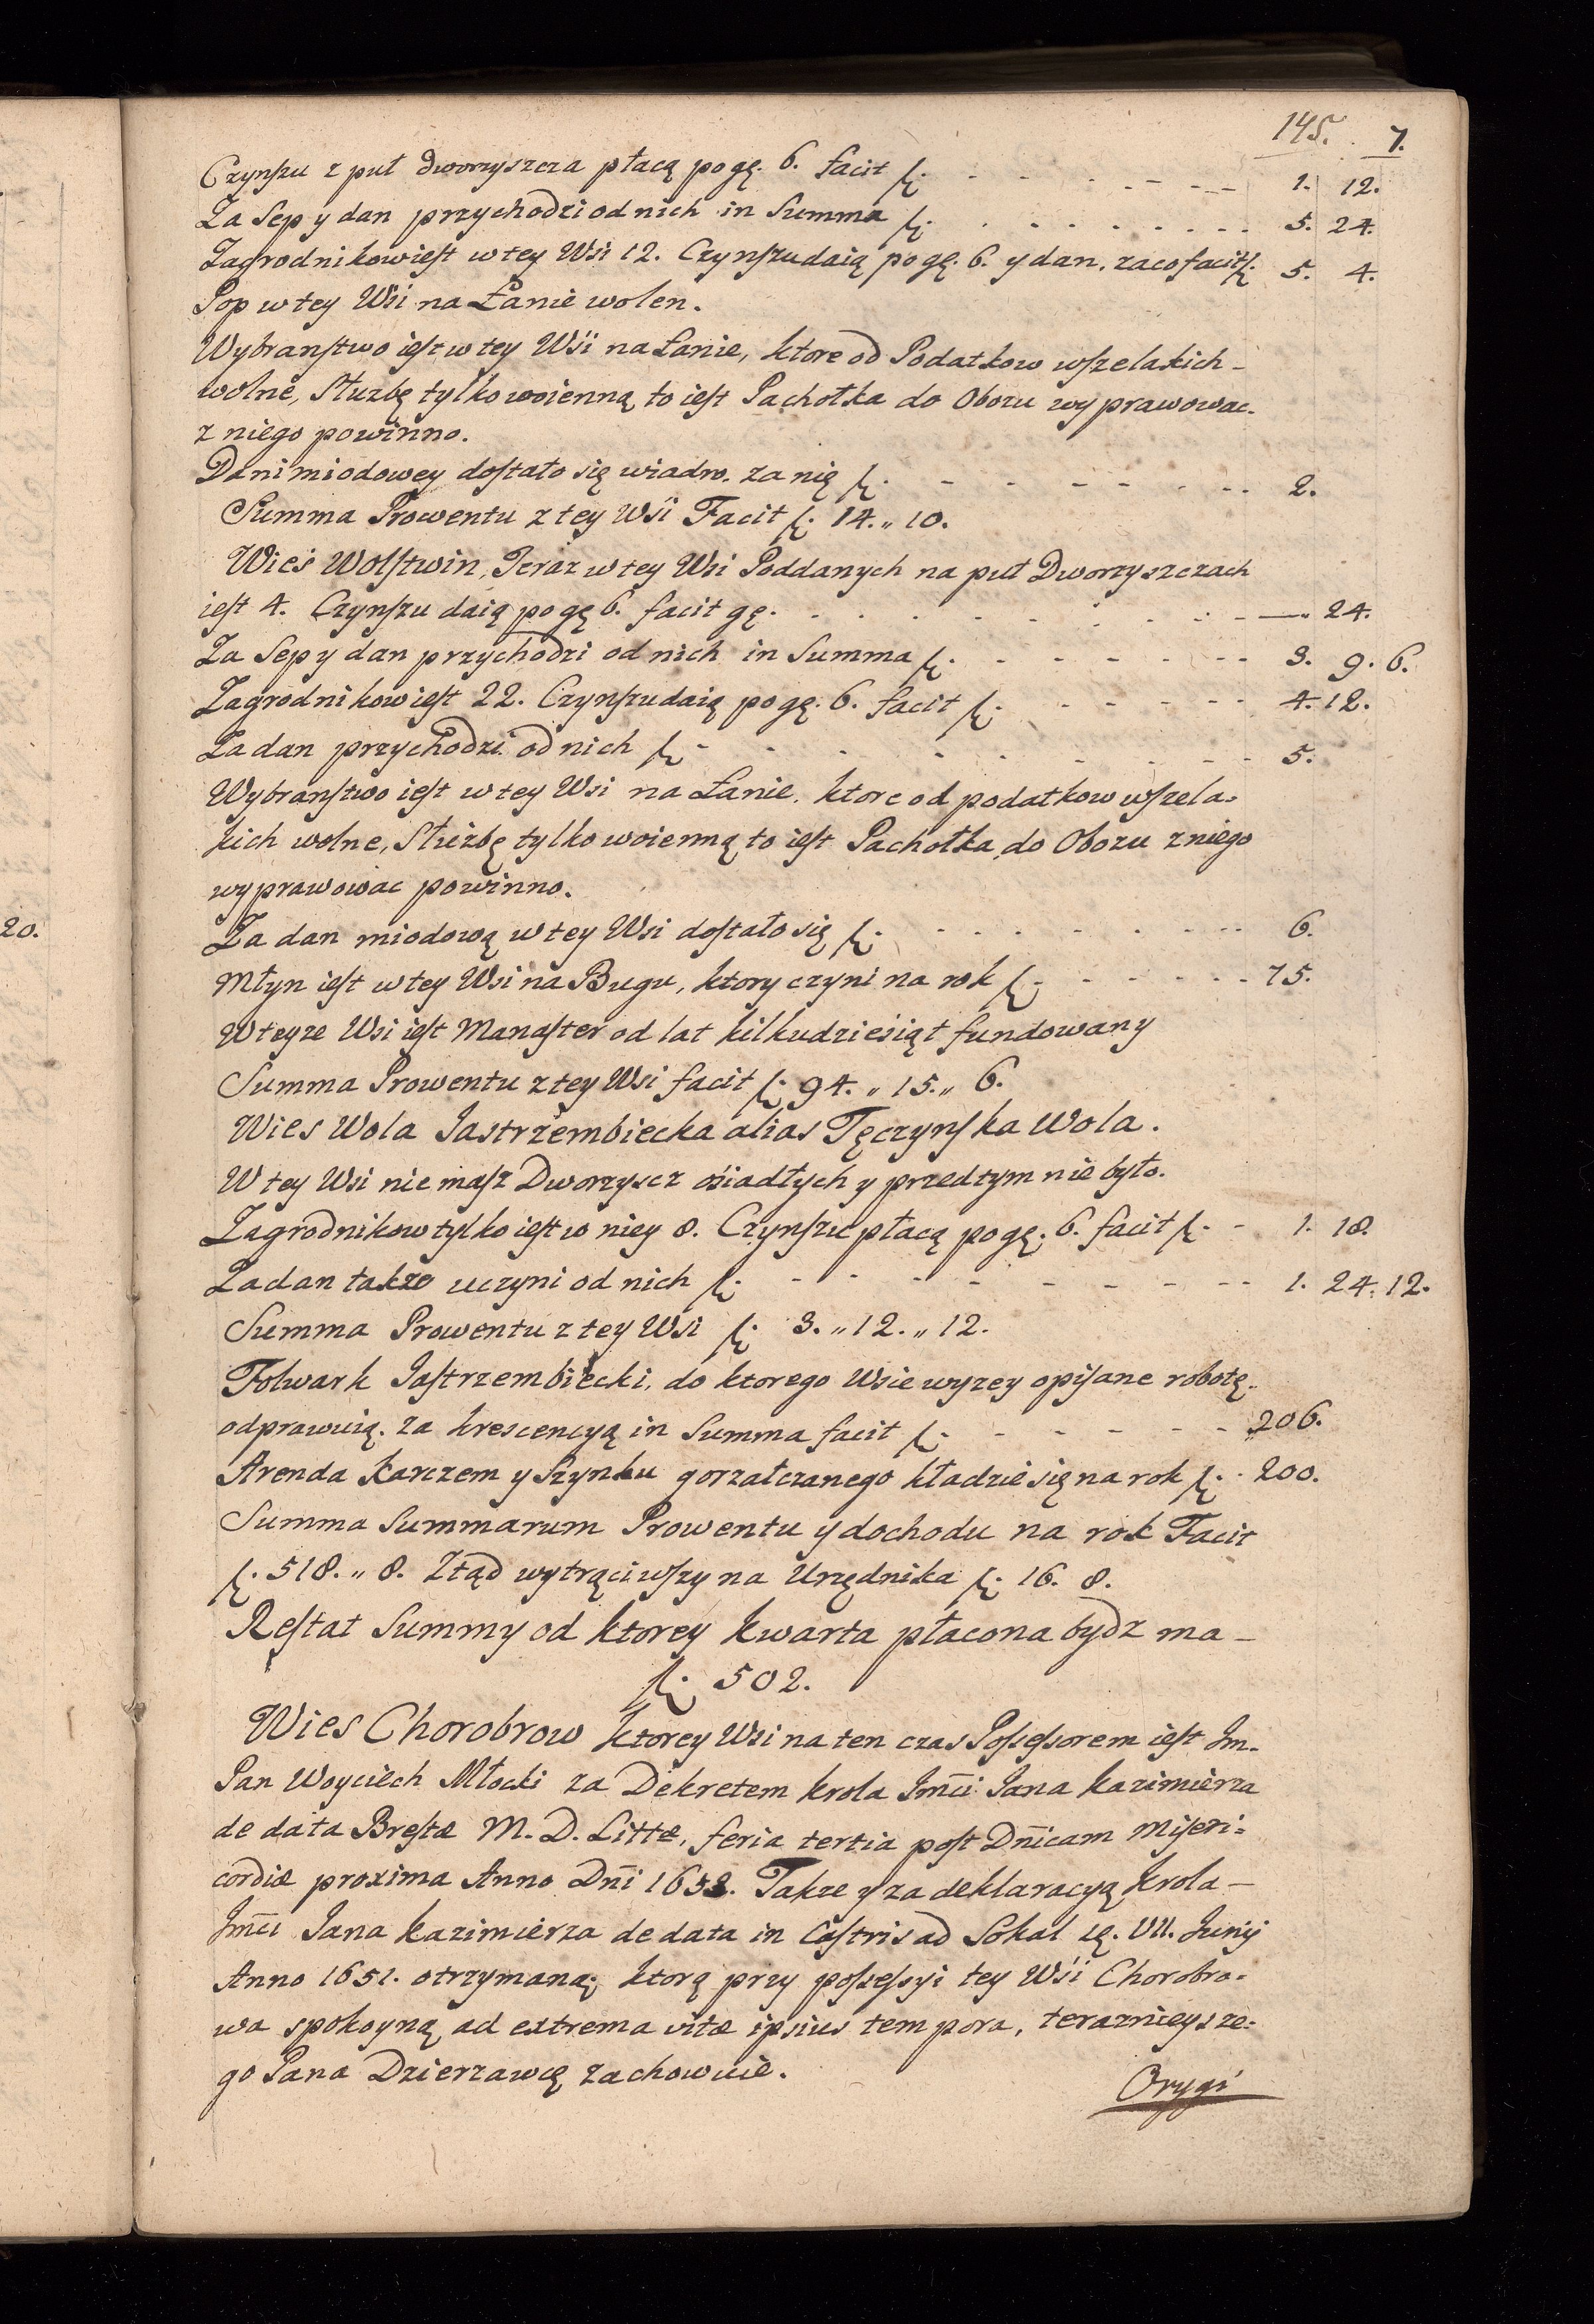 145. 7.
Czynszu z puł dworzyszcza płacą po gę. 6. facit fl. - - - - - - 1. 12.
Za Sep y dan przychodzi od nich in Summa fl. - - - - - - 5. 24.
Zagrodnikow iest w tey Wsi 12. Czynszu daią po gę. 6. y dan. za co facit fl. 5. 4.
Pop w tey Wsi na Łanie wolen.
Wybranstwo iest w tey Wsi na Łanie, ktore od Podatkow wszelakich -
wolne, Służbę tylko woienną to iest Pachołka do Obozu wyprawowac.
z niego powinno.
Dani miodowey dostało się wiadro. za nię fl. - - - - - - 2.
Summa Prowentu z tey Wsi Facit fl. 14. „ 10.
Wieś Wolstwin, Teraz w tey Wsi Poddanych na puł Dworzyszczach
iest 4. Czynszu daią po gę 6. facit gę. - - - - - - — 24.
Za Sep y dan przychodzi od nich in Summa fl. - - - - - - 3. 9. 6.
Zagrodnikow iest 22. Czynszu daią po gę. 6. facit fl. - - - - - 4. 12.
Za dan przychodzi od nich fl. - - - - - - 5.
Wybranstwo iest w tey Wsi na Łanie. ktore od podatkow wszela=
kich wolne, Służbę tylko woienną to iest Pachołka do Obozu z niego
wyprawowac powinno.
Za dan miodową w tey Wsi dostało się fl. - - - - - - 6.
Młyn iest w tey Wsi na Bugu, ktory czyni na rok fl. - - - - - 75.
W teyze Wsi iest Manaster od lat kilkudziesiąt fundowany
Summa Prowentu z tey Wsi facit fl. 94. „ 15. „ 6.
Wies Wola Jastrzembiecka alias Tęczynska Wola.
W tey Wsi nie masz Dworzyscz ośiadłych y przedtym nie było.
Zagrodnikow tylko iest w niey 8. Czynszu płacą po gę. 6. facit fl. - 1. 18.
Za dan także uczyni od nich fl. - - - - - - 1. 24. 12.
Summa Prowentu z tey Wsi fl. 3. „ 12. „ 12.
Folwark Jastrzembiecki. do ktorego Wsie wyzey opisane robotę.
odprawuią. za krescencyą in Summa facit fl. - - - - - 206.
Arenda Karczem y Szynku gorzałczanego kładzie się na rok fl. . 200.
Summa Summarum Prowentu y dochodu na rok Facit
fl. 518. „ 8. Ztąd wytrąciwszy na Urzędnika fl. 16. 8.
Restat Summy od ktorey kwarta płacona bydz ma -
fl. 502.
Wies Chorobrow ktorey Wsi na ten czas Possessorem iest Jm.
Pan Woyciech Młocki za Dekretem Krola Jm̃ci Jana Kazimierza
de data Brestæ M. D. Littæ, feria tertia post Dñicam Miseri=
cordiæ proxima Anno Dñi 1653. Takze y za deklaracyą Krola -
Jm̃ci Jana Kazimierza de data in Castris ad Sokal VII. Junij
Anno 1651. otrzymaną; ktorą przy possessyi tey Wśi Chorobro=
wa spokoyną ad extrema vitæ ipsius tempora, terazniejsze=
go Pana Dzierzawcę zachowuie.
Orygi